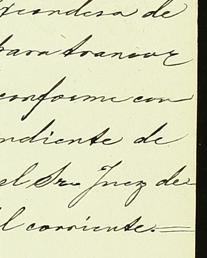 condesa de
para
conforme con
ndiente de
el Sr. Juez de
l corriente.=